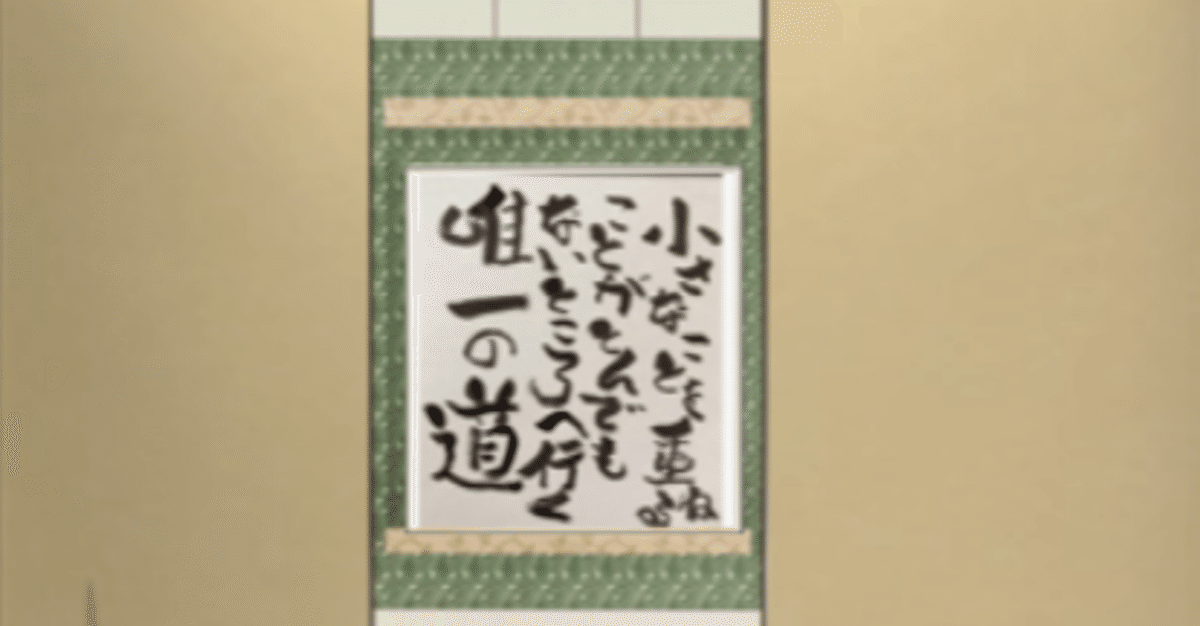 小さなことを重ねる
ことがとんでも
ないところへ行く
唯一の道